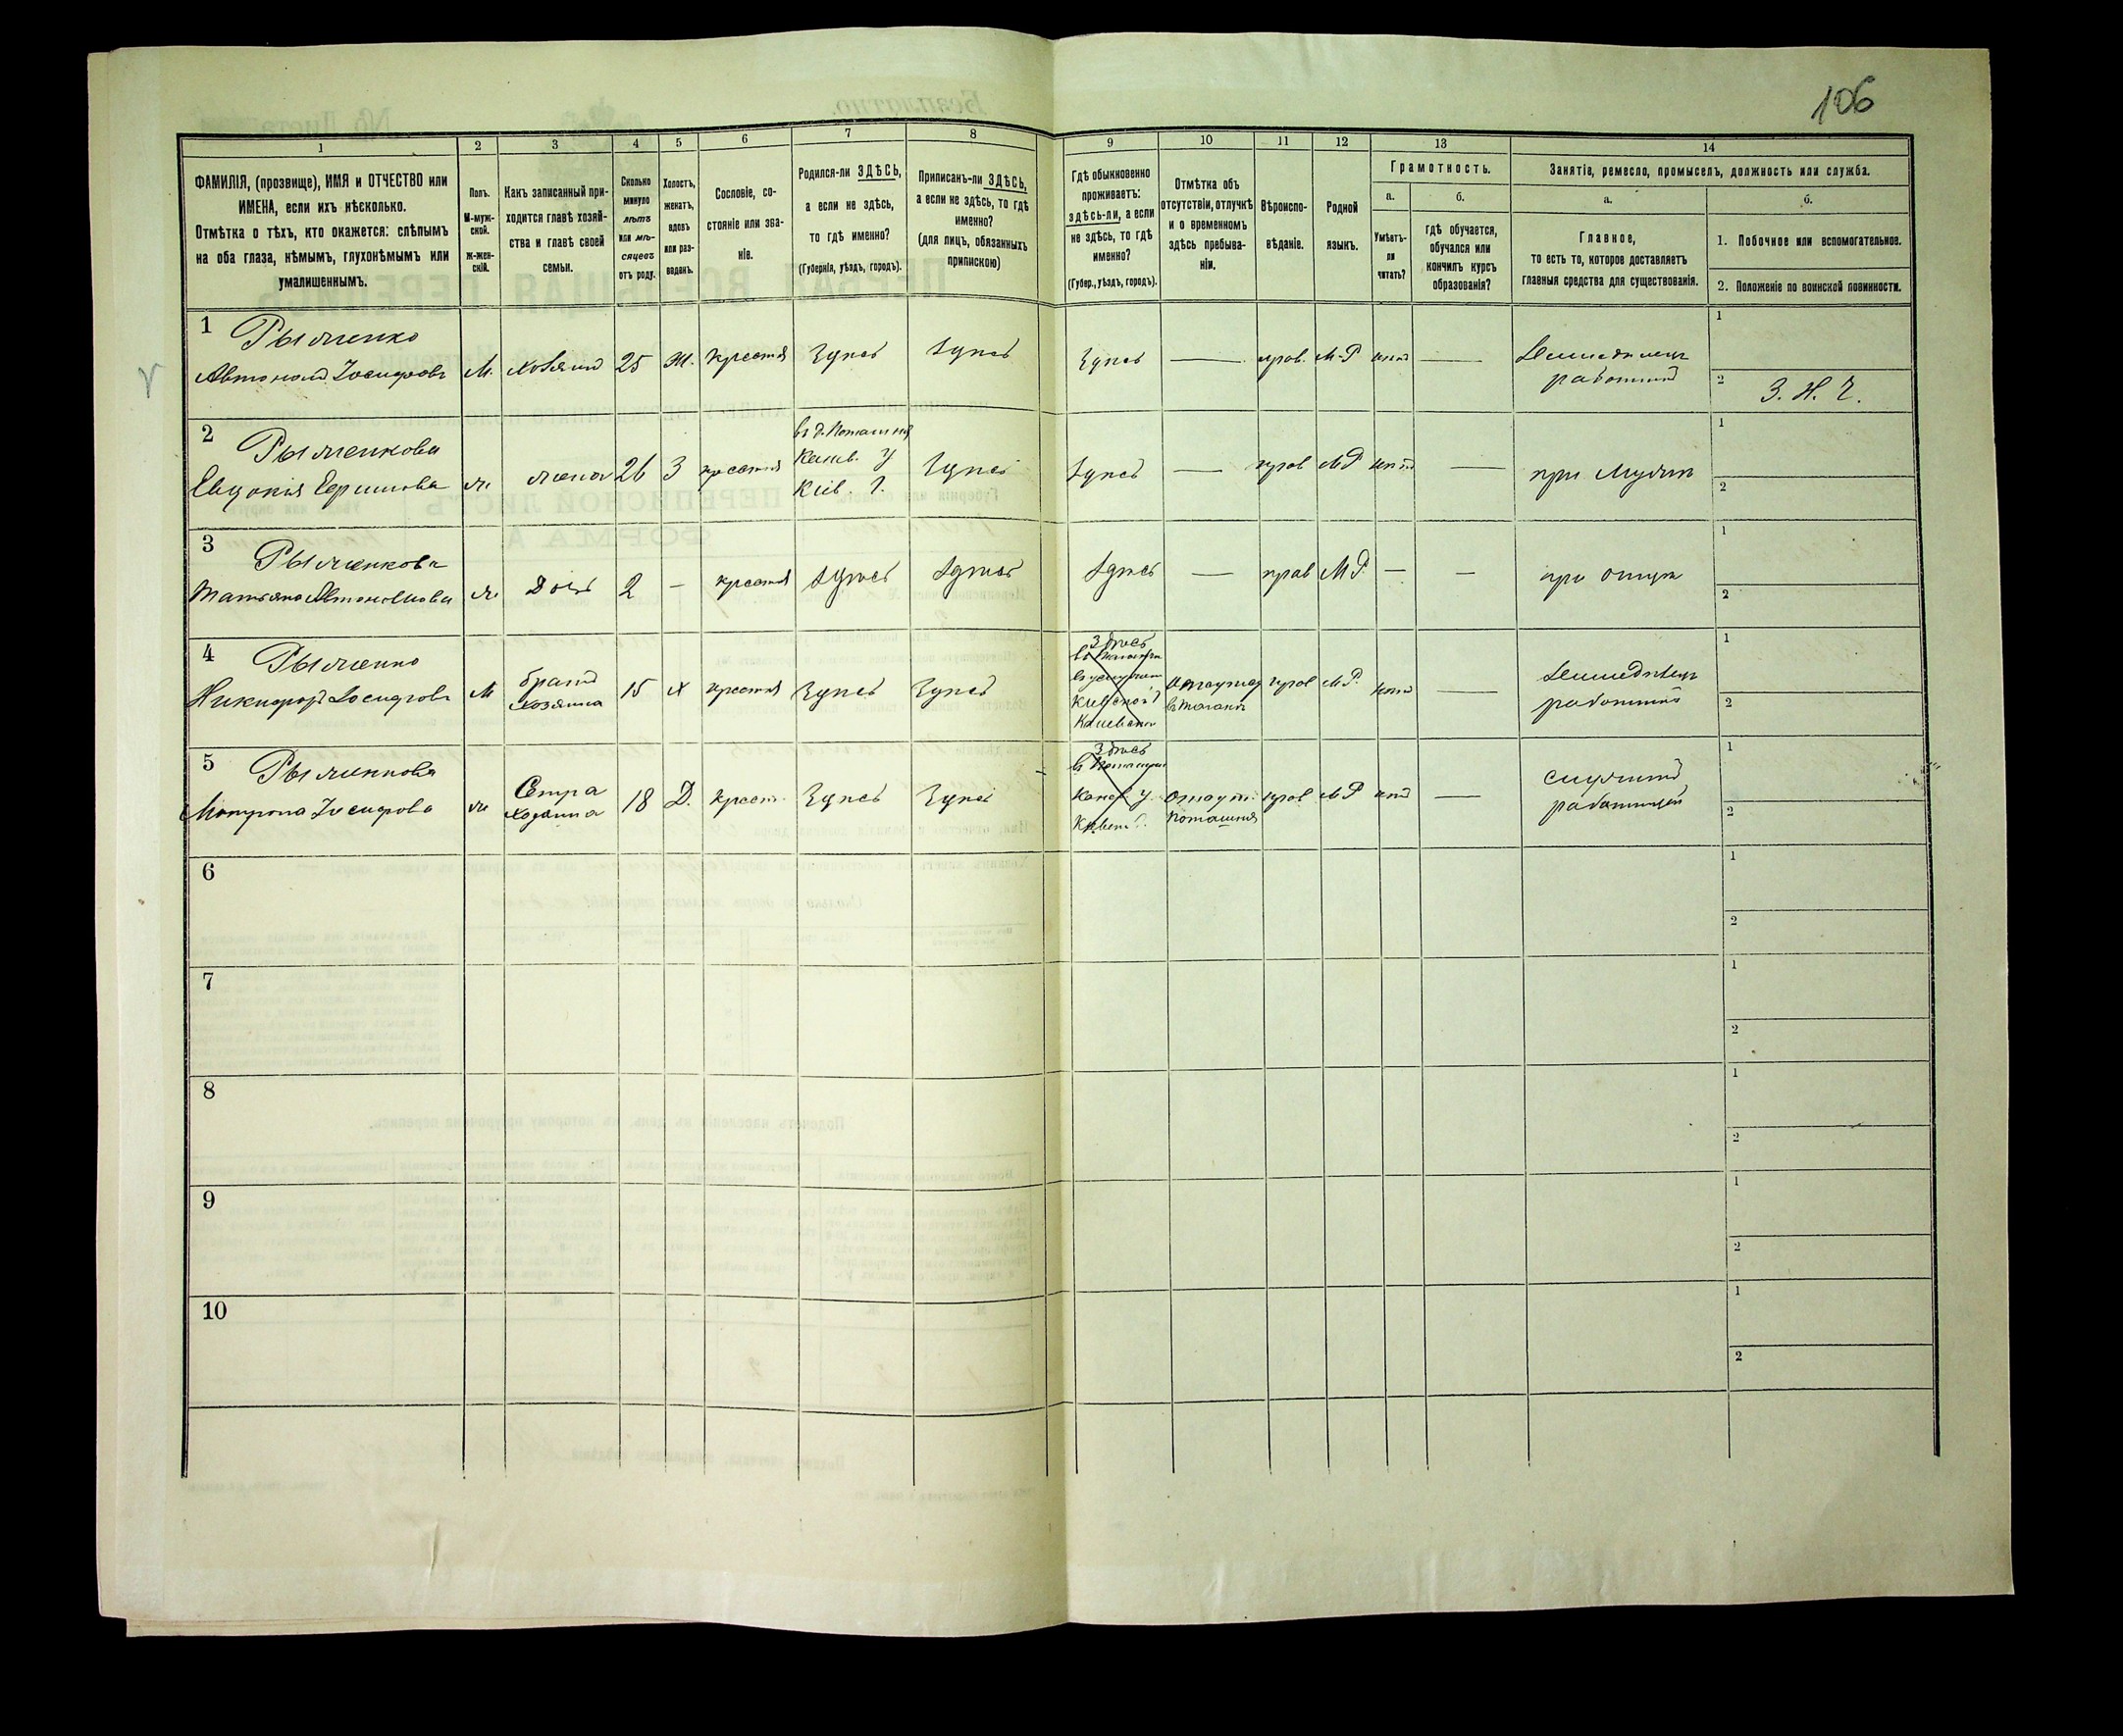 106
1 2 3 4 5 6 7 8 9 10 11 12 13 14
ФАМИЛІЯ, (прозвище), ИМЯ и ОТЧЕСТВО или
ИМЕНА, если ихъ нѣсколько.
Отмѣтка о тѣхъ, кто окажется: слѣпымъ
на оба глаза, нѣмымъ, глухонѣмымъ или
умалишеннымъ.
Полъ.
М-муж-
ской.
Ж-жен-
скій.
Какъ записанный при-
ходится главѣ хозяй-
ства и главѣ своей
семьи.
Сколько
минуло
лѣтъ
или мѣ-
сяцевъ
отъ роду.
Холостъ,
женатъ,
вдовъ
или раз-
веденъ.
Сословіе, со-
стояніе или зва-
ніе.
Родился-ли ЗДѢСЬ,
а если не здѣсь,
то гдѣ именно?
(Губернія, уѣздъ, городъ).
Приписанъ-ли ЗДѢСЬ,
а если не здѣсь, то гдѣ
именно?
(для лицъ, обязанныхъ
припискою)
Гдѣ обыкновенно
проживаетъ:
здѣсь-ли, а если
не здѣсь, то гдѣ
именно?
(Губер., уѣздъ, городъ).
Отмѣтка объ
отсутствіи, отлучкѣ
и о временномъ
здѣсь пребыва-
ніи.
Вѣроиспо-
вѣданіе.
Родной
языкъ.
Грамотность.
а.
Умѣетъ-
ли
читать?
б.
гдѣ обучается,
обучался или
кончилъ курсъ
образованія?
Занятіе, ремесло, промыселъ, должность или служба.
а.
Главное,
то есть то, которое доставляетъ
главныя средства для существованія.
б.
1. Побочное или вспомогательное.
2. Положеніе по воинской повинности.
1 Рыженко
Автономъ Іосифовъ М. хозяинъ 25 Ж. крестя Здѣсь Здѣсь Здѣсь — прав. М-Р нѣтъ — Земледѣлецъ
работникъ
1
2 З. Н. Ч.
2 Рыженкова
Евдокія Ефимова ж. жена 26 З крестя
въ д. Поташня
Канев. у
Кіев. Г.
Здѣсь Здѣсь — прав МР нѣтъ — при мужѣ
1
2
3 Рыженкова
Татьяна Автономова ж. дочь 2 — крестя Здѣсь Здѣсь Здѣсь — прав МР. — — при отцѣ
1
2
4 Рыженко
Никифоръ Іосифовъ М братъ
хозяина 15 х крестя Здѣсь Здѣсь
Здѣсь
Кіевской
Каневскій
прав М Р. нѣтъ — Земледѣлецъ
работникъ
1
2
5 Рыженкова
Мотрона Іосифова ж Сестра
хозяина 18 Д. крест. Здѣсь Здѣсь
Здѣсь
Канев у.
Отлуч.
Поташня
прав МР нѣтъ — служитъ
работницей
1
2
6
1
2
7
1
2
8
1
2
9
1
2
10
1
2